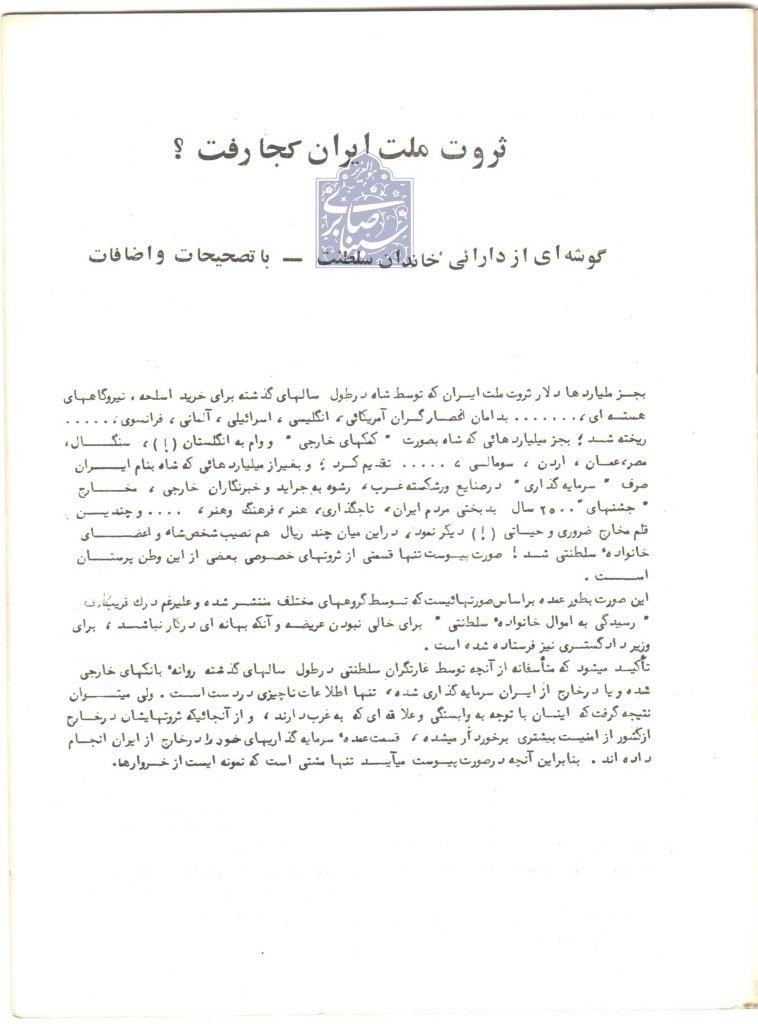 ثروت ملت ایران کجا رفت ؟
هوالعزیز
سینا صابری
گوشه ای از دارائی خاندان سلطنت — با تصحیحات و اضافات
بجز ملیارد ها دلار ثروت ملت ایران که توسط شاه در طول سالهای گذشته برای خرید اسلحه ، نیروگاههای
هسته ای ، ....... بدامان انحصارگران آمریکائی ، انگلیسی ، اسرائیلی ، آلمانی ، فرانسوی ، .....
ریخته شد ؛ بجز میلیاردهائی که شاه بصورت " کمکهای خارجی " و وام به انگلستان (!) ، سنگال ،
مصر ، عمان ، اردن ، سومالی ، ..... تقدیم کرد ؛ و بغیر از میلیاردهائی که شاه بنام ایران
صرف " سرمایه گذاری " در صنایع ورشکسته غرب ، رشوه به جراید و خبرنگاران خارجی ، مخارج
" جشنهای " ۲۵۰۰ سال بدبختی مردم ایران ، تاجگذاری ، هنر ، فرهنگ وهنر ، .... و چندین
قلم مخارج ضروری و حیاتی (!) دیگر نمود ، در این میان چند ریال هم نصیب شخص شاه و اعضای
خانواده ٔ سلطنتی شد ! صورت پیوست تنها قسمتی از ثروتهای خصوصی بعضی از این وطن پرستان
است .
این صورت بطور عمده بر اساس صورتهائیست که توسط گروههای مختلف منتشر شده و علیرغم درك فریبکاری
" رسیدگی به اموال خانواده ٔ سلطنتی " برای خالی نبودن عریضه و آنکه بهانه ای در کار نباشد ، برای
وزیر دادگستری نیز فرستاده شده است .
تأکید میشود که متأسفانه از آنچه توسط غارتگران سلطنتی در طول سالهای گذشته روانه ٔ بانکهای خارجی
شده و یا در خارج از ایران سرمایه گذاری شده ، تنها اطلاعات ناچیزی در دست است . ولی میتوان
نتیجه گرفت که اینان با توجه به وابستگی و علاقه ای که به غرب دارند ، و از آنجائیکه ثروتهایشان در خارج
از کشور از امنیت بیشتری برخوردار میشده ، قسمت عمده ٔ سرمایه گذاریهای خود را در خارج از ایران انجام
داده اند . بنابراین آنچه در صورت پیوست میآید تنها مشتی است که نمونه ایست از خروارها.